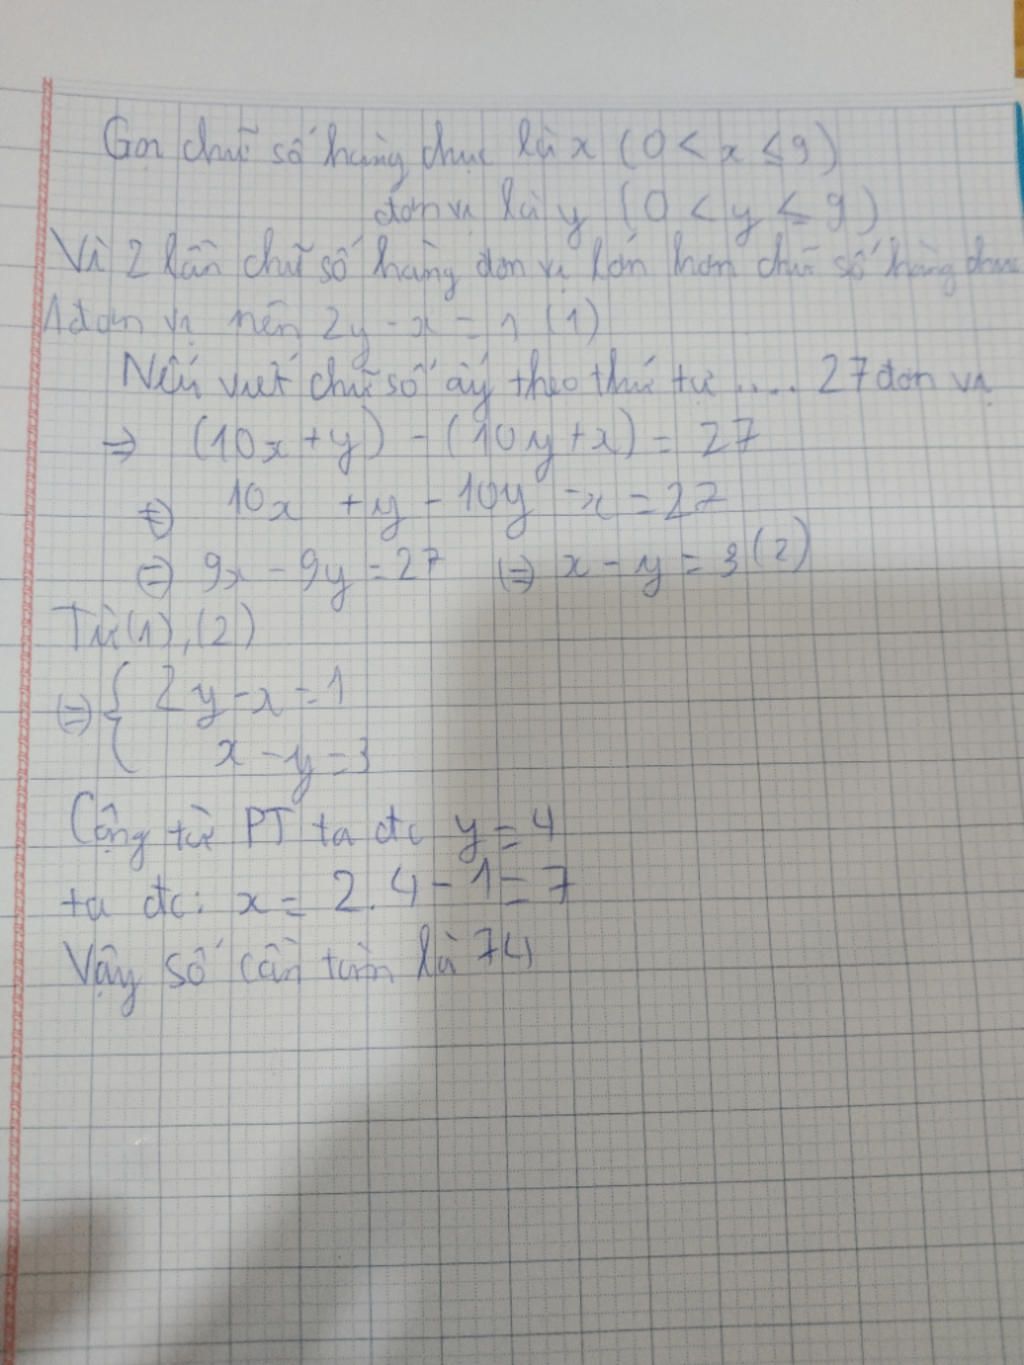 Gọi chữ số hàng chục là x (0 < x ≤ 9)
đơn vị là y (0 < y ≤ 9)
Vì 2 lần chữ số hàng đơn vị lớn hơn chữ số hàng chục
1 đơn vị nên 2y - x = 1 (1)
Nếu viết chữ số ấy theo thứ tự .... 27 đơn vị
⇒ (10x + y) - (10y + x) = 27
⇔ 10x + y - 10y - x = 27
⇔ 9x - 9y = 27 ⇔ x - y = 3 (2)
Từ (1), (2)
⇔ { 2y - x = 1
x - y = 3
Cộng từ PT ta đc y = 4
ta đc: x = 2.4 - 1 = 7
Vậy số cần tìm là 74